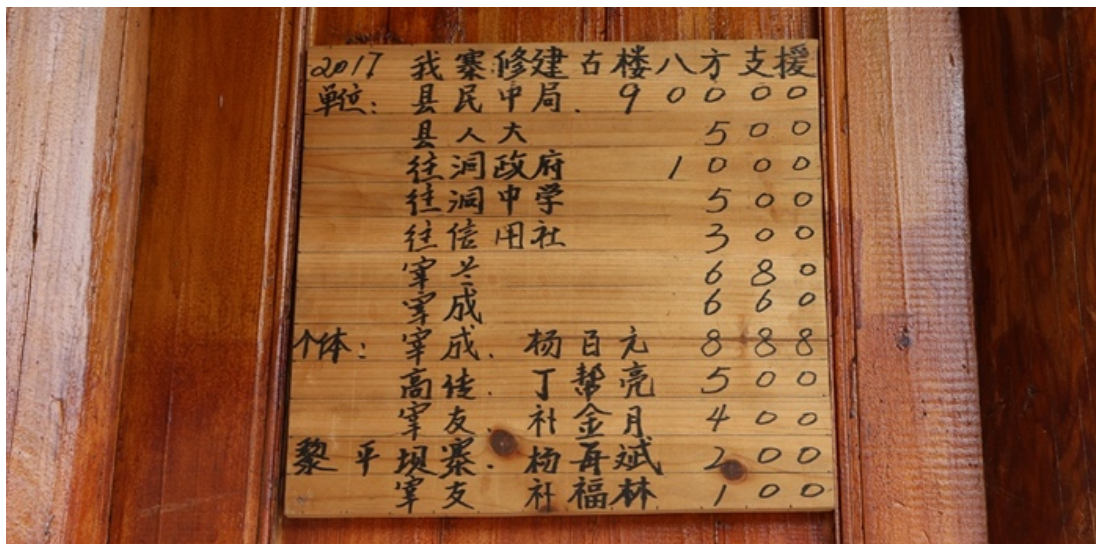 2017 我寨修建古楼八方支援
单位：县民中局．90000
县人大 500
往洞政府 1000
往洞中学 500
往信用社 300
宰兰 680
宰成 660
个体：宰成．杨百元 888
高传．丁帮亮 500
宰友．社金月 400
黎平坝寨．杨再斌 200
宰友 社福林 100